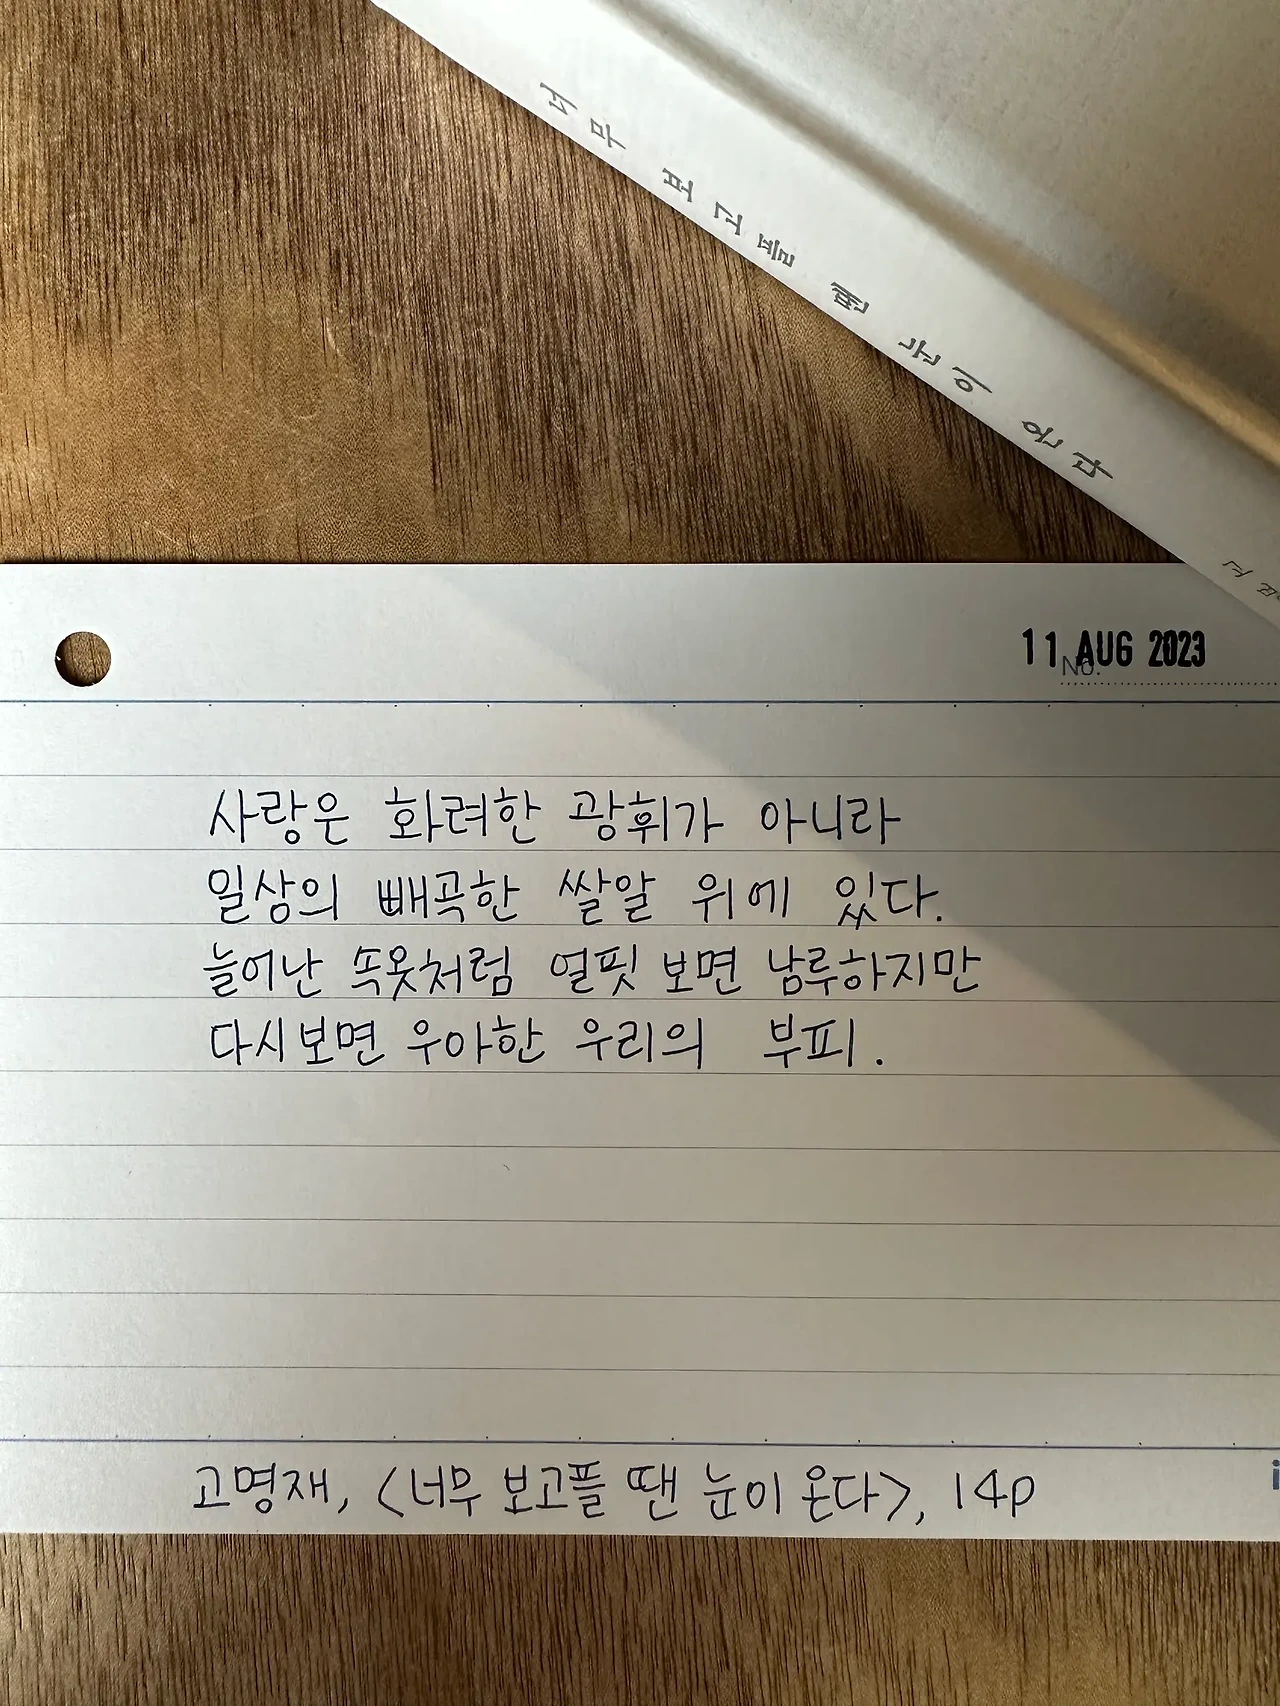 너무 보고플 땐 눈이 온다
11 AUG 2023
No.
사랑은 화려한 광휘가 아니라
일상의 빼곡한 쌀알 위에 있다.
늘어난 속옷처럼 얼핏 보면 남루하지만
다시보면 우아한 우리의 부피.
고명재, <너무 보고플 땐 눈이 온다>, 14p